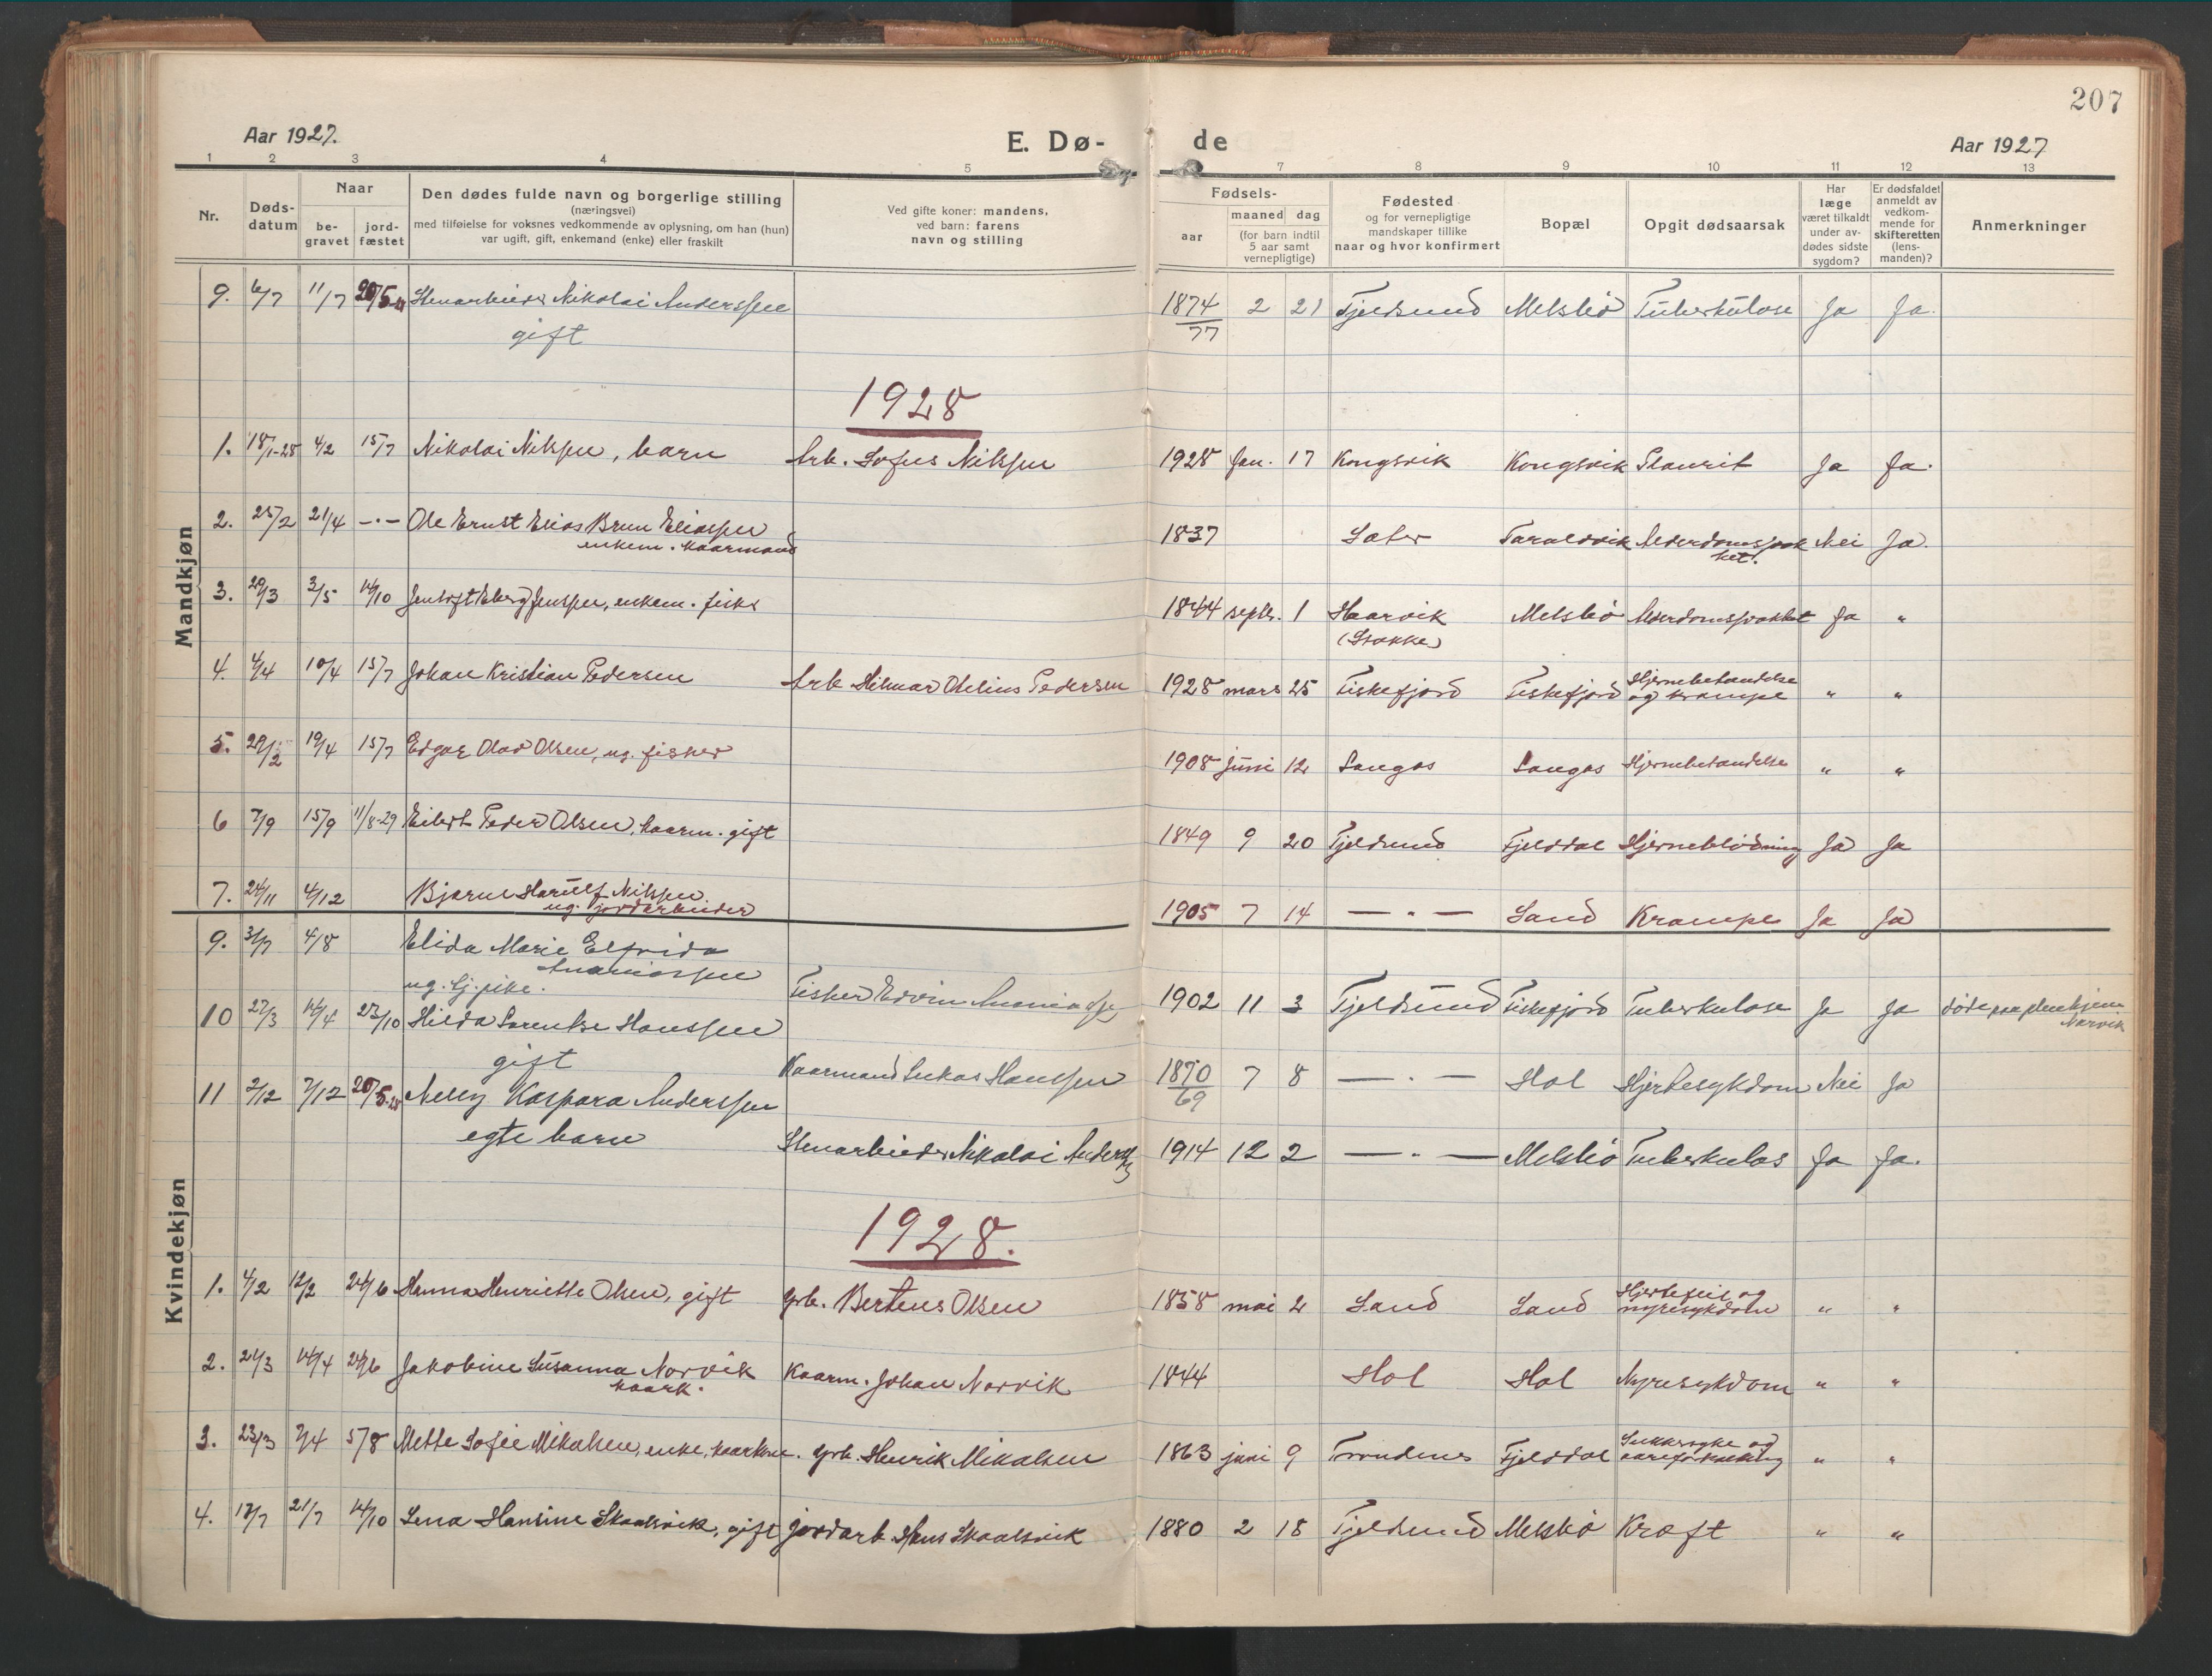 207
Aar 1927. E. Dø- de Aar 1927
1 2 3 4 5 7 8 9 10 11 12 13
Nr.
Døds-
datum
Naar
be-
gravet
jord-
fæstet
Den dødes fulde navn og borgerlige stilling
(næringsvei)
med tilføielse for voksnes vedkommende av oplysning, om han (hun)
var ugift, gift, enkemand (enke) eller fraskilt
Ved gifte koner: mandens,
ved barn: farens
navn og stilling
Fødsels-
aar
maaned dag
(for barn indtil
5 aar samt
vernepligtige)
Fødested
og for vernepligtige
mandskaper tillike
naar og hvor konfirmert
Bopæl
Opgit dødsaarsak
Har
læge
været tilkaldt
under av-
dødes sidste
sygdom?
Er dødsfaldet
anmeldt av
vedkom-
mende for
skifteretten
(lens-
manden)?
Anmerkninger
Mandkjøn
9. 6/7 11/7 20/5 Nikolai Anderssen 1874 2 21 Tjeldsund Melsbö Tuberkulose Ja Ja.
gift 77
1928
1. 18/1-28 4/2 15/7 Nikolai Nilssen, barn Arb. Sofus Nilssen 1928 Jan. 17 Kongsvik Kongsvik Ja Ja.
2. 25/2 21/4 -·- Ole Ernst Elias Brun Eliassen 1837 Taraldvik Nei Ja.
enkem. kaarmand
3. 29/3 3/5 14/10 Jenssen, enkem. fisker 1844 septr. 1 Haarvik Melsbö Ja "
(Stokke)
4. 4/4 10/4 15/7 Johan Kristian Pedersen Arb Hilmar Pedersen 1928 mars 25 Fiskefjord Fiskefjord Hjernebetændelse " "
og krampe
5. 29/2 19/4 15/7 Edgar Olav Olsen, ug. fisker 1908 juni 12 Sangas Sangas Hjernebetændelse " "
6 7/9 15/9 11/8-29 Eilert Peder Olsen, kaarm. gift 1849 9 20 Tjeldsund Fjelddal Hjerneblödning Ja Ja
7. 24/11 4/12 Bjarne Harulf Nilssen 1905 7 14 -·- Sand Krampe Ja Ja
ug. jordarbeider
Kvindekjøn
9. 31/7 4/8 Elida Marie Elfrida
Ananiassen
ug. tj. pike. Fisker Edvin Ananiassen 1902 11 3 Tjeldsund Fiskefjord Tuberkulose Ja Ja döde paa pleiehjem
Narvik
10 27/3 14/4 23/10 Hilda Sarentse Hanssen
gift Kaarmand Lukas Hanssen 1870 7 8 -·- Hol Hjertesykdom Nei Ja
69
11 2/12 7/12 20/5-28 Nelly Kaspara Anderssen
egte barn Nikolai Anderssen 1914 12 2 -·- Melsbö Tuberkulos Ja Ja.
1928.
1. 4/2 12/2 24/6 Hanna Henriette Olsen, gift grb. Berteus Olsen 1858 mai 2 Sand Sand Hjertefeil og " "
nyresykdom
2. 21/3 14/4 24/6 Jakobine Susanna Norvik Kaarm. Johan Norvik 1844 Hol Hol Nyresykdom " "
kaark.
3. 23/3 7/4 5/8 Mette Sofie Mikalsen, enke, kaarkone. grb. Henrik Mikalsen 1863 juni 9 Trondenes Fjelddal Sukkersyke og " "
aareforkalkning
4. 17/7 21/7 14/10 Lena Hansine Skaalsvik, gift jordarb Hans Skaalsvik 1880 2 18 Tjeldsund Melsbö Kræft " "